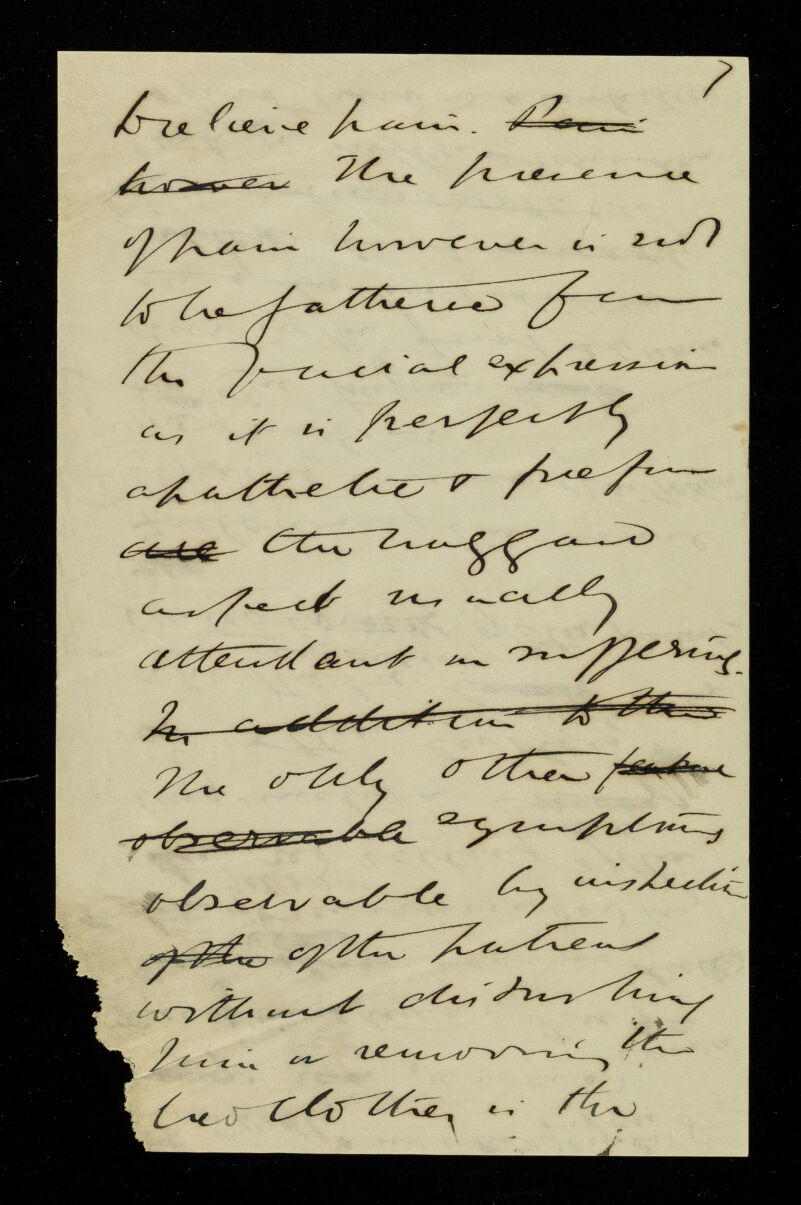 7
to relieve pain. Pain
however The presence
of pain however is not
to be gathered from
the facial expression
as it is perfectly
apathetic & free from
are the haggard
aspect usually
attendant on suffering.
In addition to this
The only other feature
observable symptoms
observable by inspection
of the of the patient
without disturbing
him or removing the
bed clothes is the